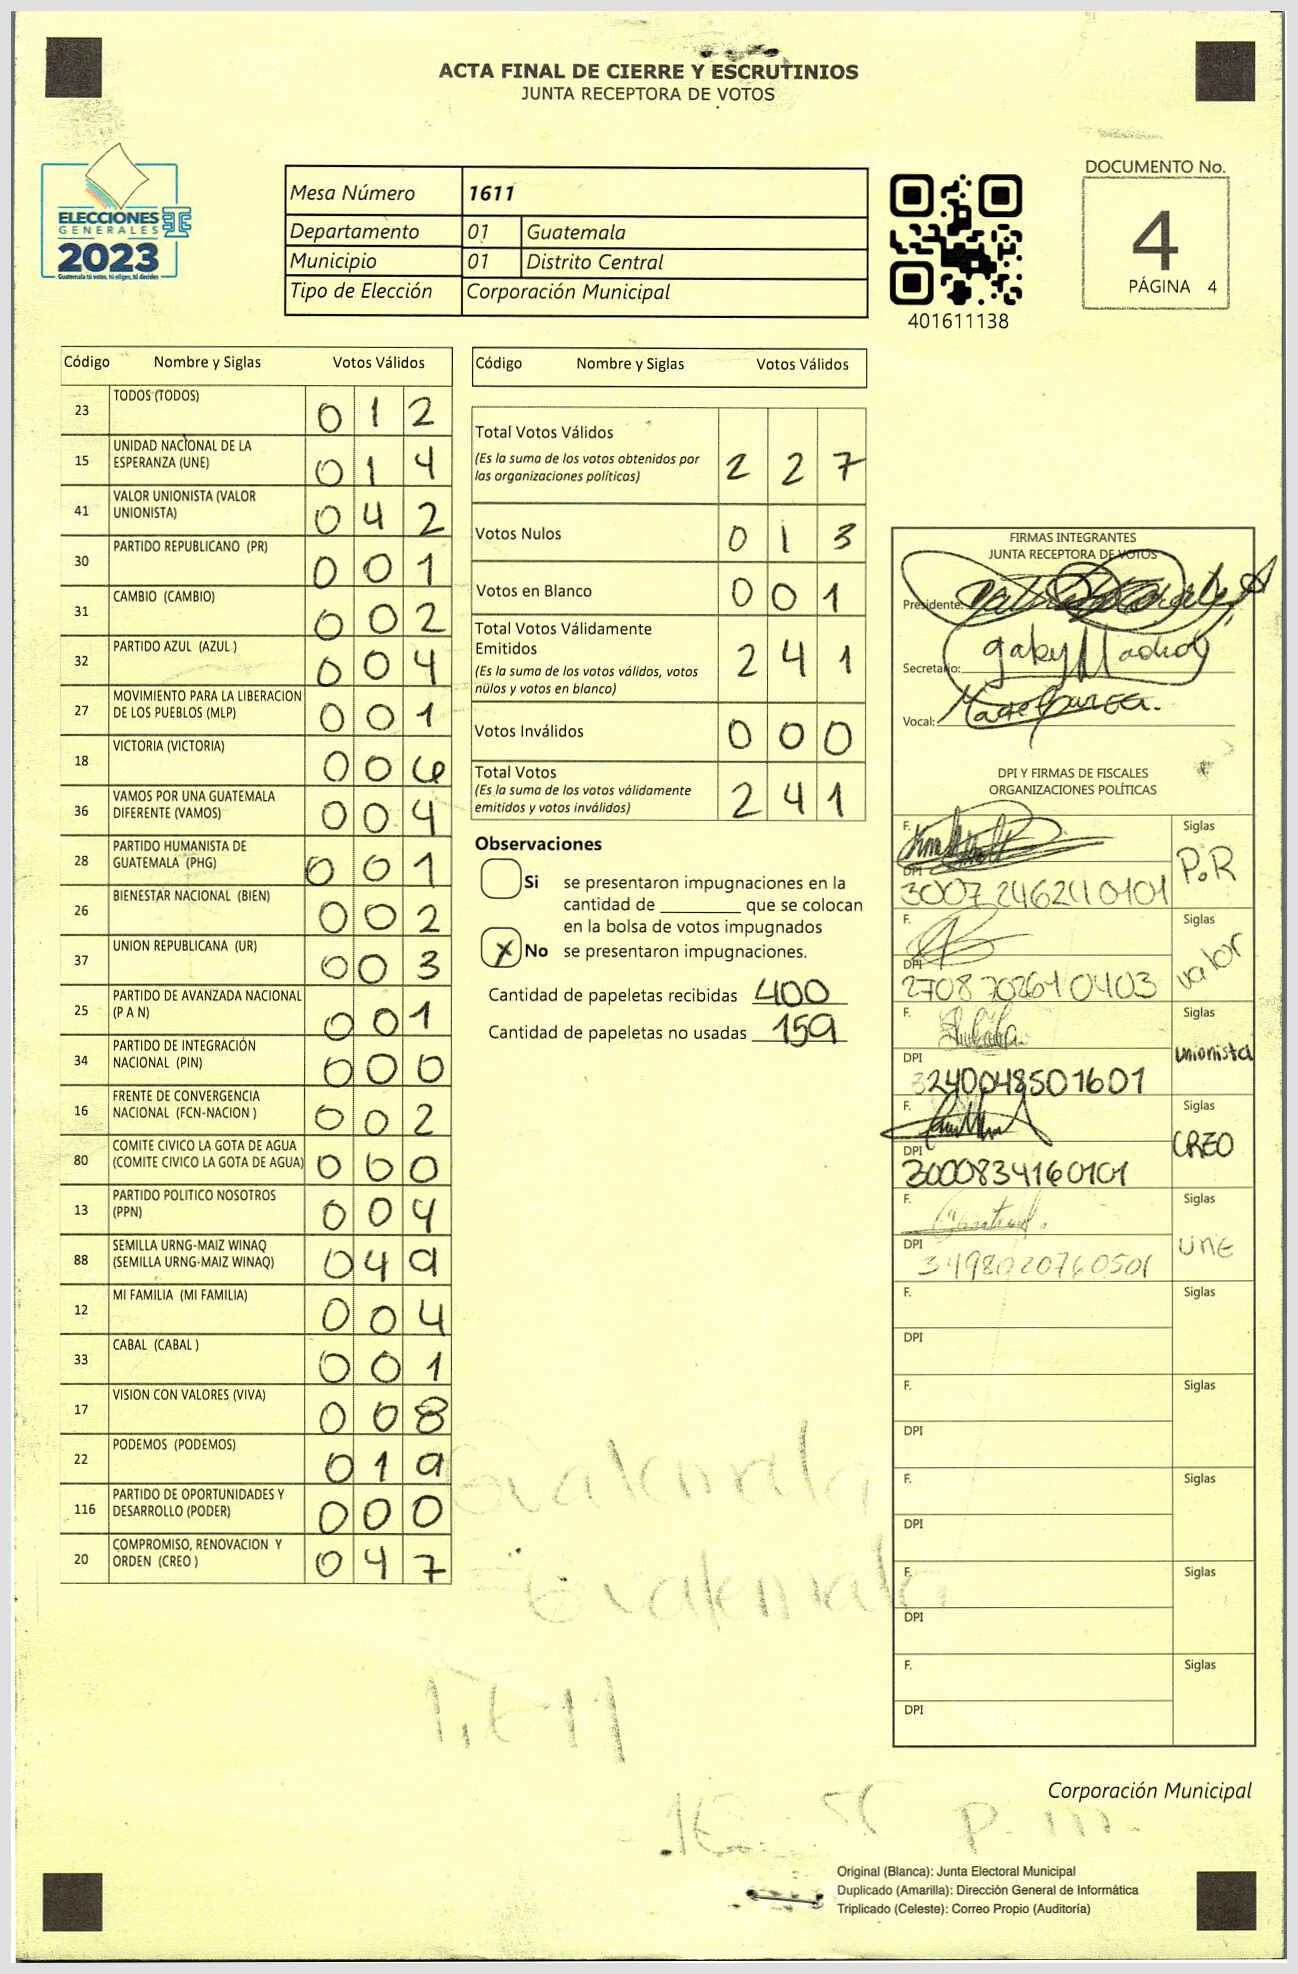 ACTA FINAL DE CIERRE Y ESCRUTINIOS
JUNTA RECEPTORA DE VOTOS
ELECCIONES
GENERALES
2023
Guatemala tú votas, tú eliges, tú decides
Mesa Número 1611
Departamento 01 Guatemala
Municipio 01 Distrito Central
Tipo de Elección Corporación Municipal
401611138
DOCUMENTO No.
4
PÁGINA 4
Código Nombre y Siglas Votos Válidos
23 TODOS (TODOS) 0 1 2
15 UNIDAD NACIONAL DE LA ESPERANZA (UNE) 0 1 4
41 VALOR UNIONISTA (VALOR UNIONISTA) 0 4 2
30 PARTIDO REPUBLICANO (PR) 0 0 1
31 CAMBIO (CAMBIO) 0 0 2
32 PARTIDO AZUL (AZUL ) 0 0 4
27 MOVIMIENTO PARA LA LIBERACION DE LOS PUEBLOS (MLP) 0 0 1
18 VICTORIA (VICTORIA) 0 0 6
36 VAMOS POR UNA GUATEMALA DIFERENTE (VAMOS) 0 0 4
28 PARTIDO HUMANISTA DE GUATEMALA (PHG) 0 0 1
26 BIENESTAR NACIONAL (BIEN) 0 0 2
37 UNION REPUBLICANA (UR) 0 0 3
25 PARTIDO DE AVANZADA NACIONAL (P A N) 0 0 1
34 PARTIDO DE INTEGRACIÓN NACIONAL (PIN) 0 0 0
16 FRENTE DE CONVERGENCIA NACIONAL (FCN-NACION ) 0 0 2
80 COMITE CIVICO LA GOTA DE AGUA (COMITE CIVICO LA GOTA DE AGUA) 0 0 0
13 PARTIDO POLITICO NOSOTROS (PPN) 0 0 4
88 SEMILLA URNG-MAIZ WINAQ (SEMILLA URNG-MAIZ WINAQ) 0 4 9
12 MI FAMILIA (MI FAMILIA) 0 0 4
33 CABAL (CABAL ) 0 0 1
17 VISION CON VALORES (VIVA) 0 0 8
22 PODEMOS (PODEMOS) 0 1 9
116 PARTIDO DE OPORTUNIDADES Y DESARROLLO (PODER) 0 0 0
20 COMPROMISO, RENOVACION Y ORDEN (CREO ) 0 4 7
Código Nombre y Siglas Votos Válidos
Total Votos Válidos
(Es la suma de los votos obtenidos por las organizaciones políticas) 2 2 7
Votos Nulos 0 1 3
Votos en Blanco 0 0 1
Total Votos Válidamente Emitidos
(Es la suma de los votos válidos, votos nulos y votos en blanco) 2 4 1
Votos Inválidos 0 0 0
Total Votos
(Es la suma de los votos válidamente emitidos y votos inválidos) 2 4 1
Observaciones
Si se presentaron impugnaciones en la
cantidad de ________ que se colocan
en la bolsa de votos impugnados
X No se presentaron impugnaciones.
Cantidad de papeletas recibidas 400
Cantidad de papeletas no usadas 159
FIRMAS INTEGRANTES
JUNTA RECEPTORA DE VOTOS
Presidente:
Secretario: gaby
Vocal:
DPI Y FIRMAS DE FISCALES
ORGANIZACIONES POLÍTICAS
F. Siglas
P.R
DPI
3007246240101
F. Siglas
valor
DPI
2708702610403
F. Siglas
unionista
DPI
3240048501601
F. Siglas
CREO
DPI
3000834160101
F. Siglas
UNE
DPI
3498020760501
F. Siglas
DPI
F. Siglas
DPI
F. Siglas
DPI
F. Siglas
DPI
F. Siglas
DPI
Guatemala
Guatemala
p.m.
Corporación Municipal
Original (Blanca): Junta Electoral Municipal
Duplicado (Amarilla): Dirección General de Informática
Triplicado (Celeste): Correo Propio (Auditoría)